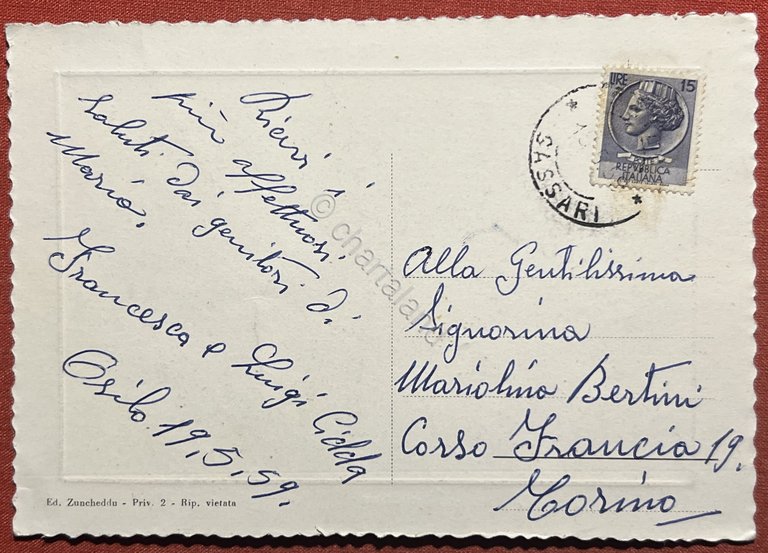 Ricevi i
più affettuosi
saluti dai genitori di
Mario.
Francesca e Luigi Cidda
Osilo 19,5,59.
LIRE 15
REPVBBLICA
ITALIANA
SASSARI
Alla Gentilissima
Signorina
Mariolina Bertini
Corso Francia 19.
Torino
Ed. Zuncheddu - Priv. 2 - Rip. vietata
© chartaland